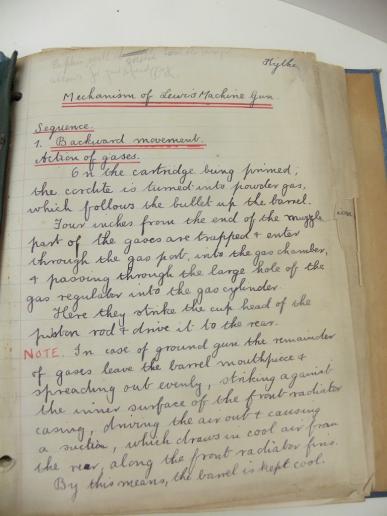 Hythe
Mechanism of Lewis Machine Gun
Sequence.
1. Backward movement.
Action of gases.
On the cartridge being primed,
the cordite is turned into powder gas,
which follows the bullet up the barrel.
Four inches from the end of the muzzle
part of the gases are trapped & enter
through the gas port, into the gas chamber,
& passing through the large hole of the
gas regulator into the gas cylinder.
Here they strike the cup head of the
piston rod & drive it to the rear.
NOTE. In case of ground gun the remainder
of gases leave the barrel mouthpiece &
spreading out evenly, striking against
the inner surface of the front radiator
casing, driving the air out & causing
a suction, which draws in cool air from
the rear, along the front radiator fins.
By this means, the barrel is kept cool.